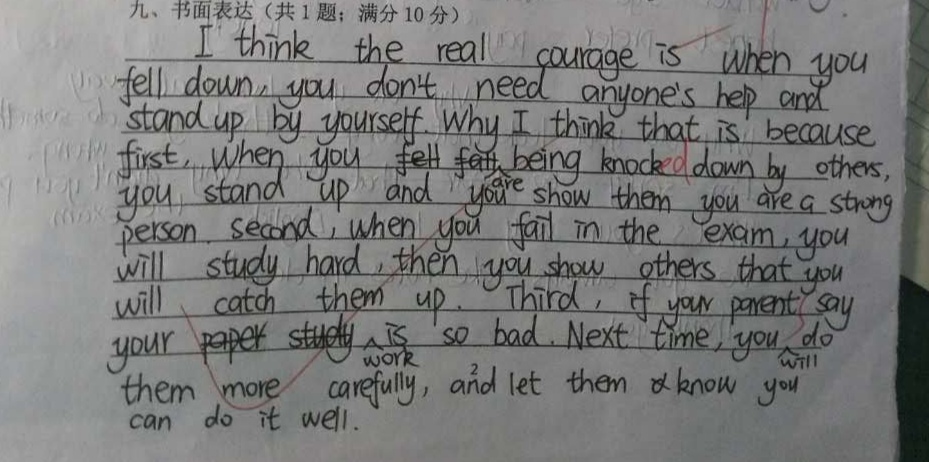 九、书面表达（共1题；满分10分）
I think the real courage is when you
fell down, you don't need anyone's help and
stand up by yourself. Why I think that is because
first, when you fell fall being knocked down by others,
are
you stand up and you show them you are a strong
person. second, when you fail in the exam, you
will study hard, then you show others that you
will catch them up. Third, if your parent say
your paper study is so bad. Next time, you do
work will
them more carefully, and let them know you
can do it well.